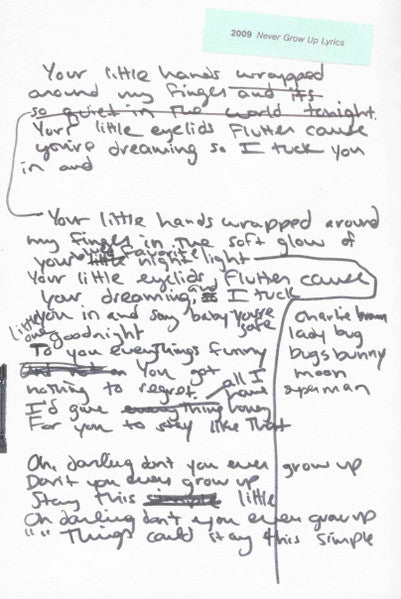 2009 Never Grow Up Lyrics
Your little hands wrapped
around my finger and its
so quiet in the world tonight.
Your little eyelids flutter cause
you're dreaming so I tuck you
in and
Your little hands wrapped around
my finger in the soft glow of
your little favorite night light
Your little eyelids flutter cause
your dreaming, and I tuck
you in and say baby you're safe
little one goodnight
To you everything's funny
You got
nothing to regret.
all I have
I'd give everything honey
For you to stay like that
charlie brown
lady bug
bugs bunny
moon
superman
Oh darling don't you ever grow up
Don't you ever grow up
Stay this little
Oh darling don't you ever grow up
"" Things could stay this simple